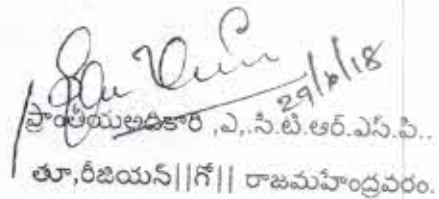 29/6/18
ప్రాంతీయఅదికారి ,ఎ,.సి.టి.ఆర్.ఎస్.పి..
తూ,రీజియన్||గో|| రాజమహేంద్రవరం.